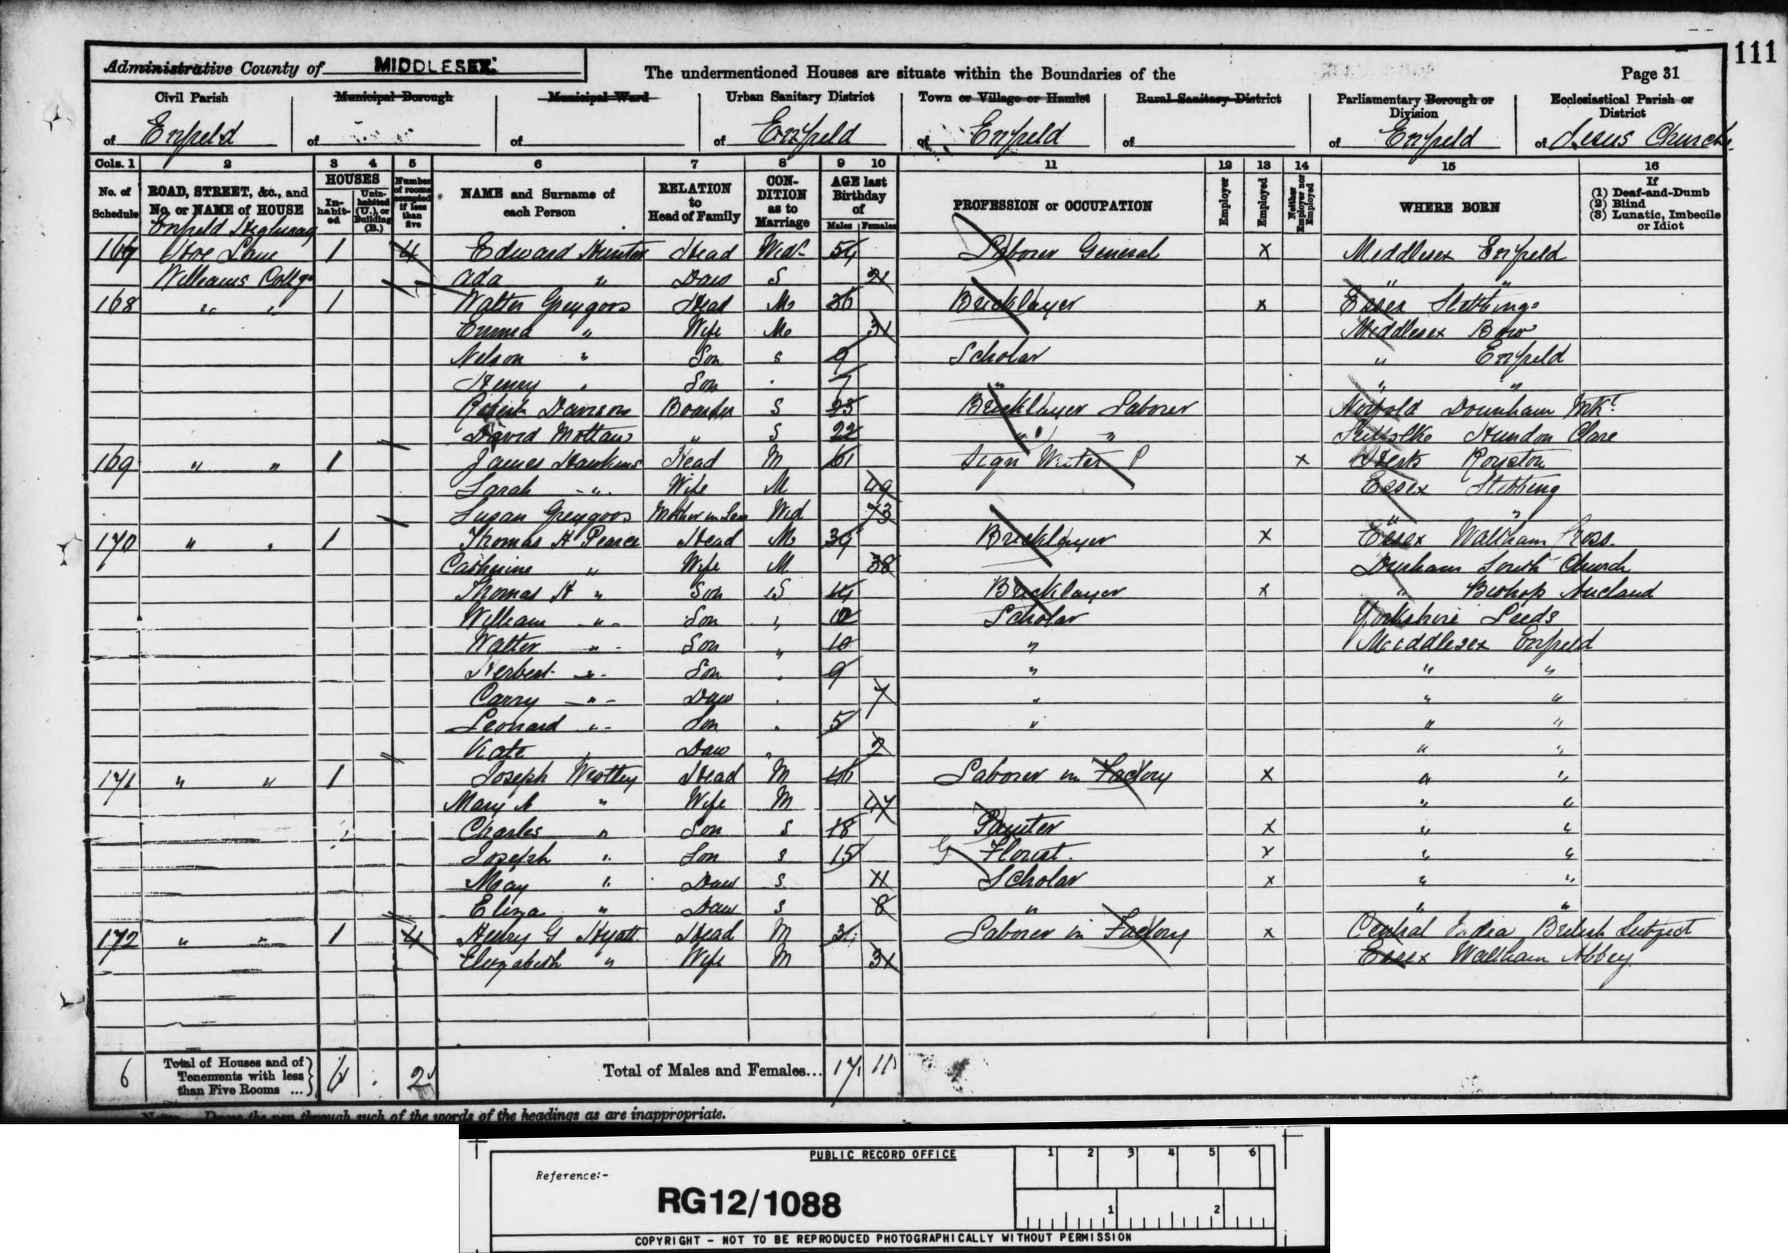 111
Administrative County of MIDDLESEX.
The undermentioned Houses are situate within the Boundaries of the
Page 31
Civil Parish of Enfield
Municipal Borough of
Municipal Ward of
Urban Sanitary District of Enfield
Town or Village or Hamlet of Enfield
Rural Sanitary District of
Parliamentary Borough or Division of Enfield
Ecclesiastical Parish or District of Jesus Church
Cols. 1 2 3 4 5 6 7 8 9 10 11 12 13 14 15 16
No. of Schedule
ROAD, STREET, &c., and No. or NAME of HOUSE
HOUSES
In-habit-ed
Unin-habited (U.), or Building (B.)
Number of rooms occupied if less than five
NAME and Surname of each Person
RELATION to Head of Family
CON-DITION as to Marriage
AGE last Birthday of
Males Females
PROFESSION or OCCUPATION
Employer
Employed
Neither Employer nor Employed
WHERE BORN
If
(1) Deaf-and-Dumb
(2) Blind
(3) Lunatic, Imbecile or Idiot
Enfield Highway
167 Hoe Lane 1 4 Edward Hunter Head Widr 54 Laborer General X Middlesex Enfield
Williams Cottgs Ada " Daur S 21 " "
168 " " 1 Walter Greygoos Head M 36 Bricklayer X Essex Stebbing
Emma " Wife M 31 Middlesex Bow
Nelson " Son S 9 Scholar " Enfield
Henry " Son " 7 " " "
Robert Dawson Boarder S 23 Bricklayer Laborer Norfold Downham Mkt
David " S 22 " " Hundon Clare
169 " " 1 James Hawkins Head M 61 Sign Writer P X Herts Royston
Sarah " Wife M 49 Essex Stebbing
Susan Greygoos Mother in Law Wid 73 " "
170 " " 1 Thomas H Pearce Head M 39 Bricklayer X Essex Waltham Cross
Catherine " Wife M 38 Durham South Church
Thomas H " Son S 14 Bricklayer X " Bishop Aucland
William " Son " 12 Scholar Yorkshire Leeds
Walter " Son " 10 " Middlesex Enfield
Herbert " Son " 9 " " "
Carry " Daur " 7 " " "
Leonard " Son " 5 " " "
Kate " Daur " 2 " "
171 " " 1 Joseph Head M 46 Laborer in Factory X " "
Mary A " Wife M 47 " "
Charles " Son S 18 Painter X " "
Joseph " Son S 15 G Florist X " "
May " Daur S 11 Scholar X " "
Eliza " Daur S 8 " " "
172 " " 1 4 Henry G Hyatt Head M Laborer in Factory X Central India British Subject
Elizabeth " Wife M 31 Essex Waltham Abbey
6 Total of Houses and of Tenements with less than Five Rooms ... 6 2 Total of Males and Females... 17 11
Note.—Draw the pen through such of the words of the headings as are inappropriate.
PUBLIC RECORD OFFICE
1 2 3 4 5 6
Reference:-
RG12/1088
1 2
COPYRIGHT - NOT TO BE REPRODUCED PHOTOGRAPHICALLY WITHOUT PERMISSION